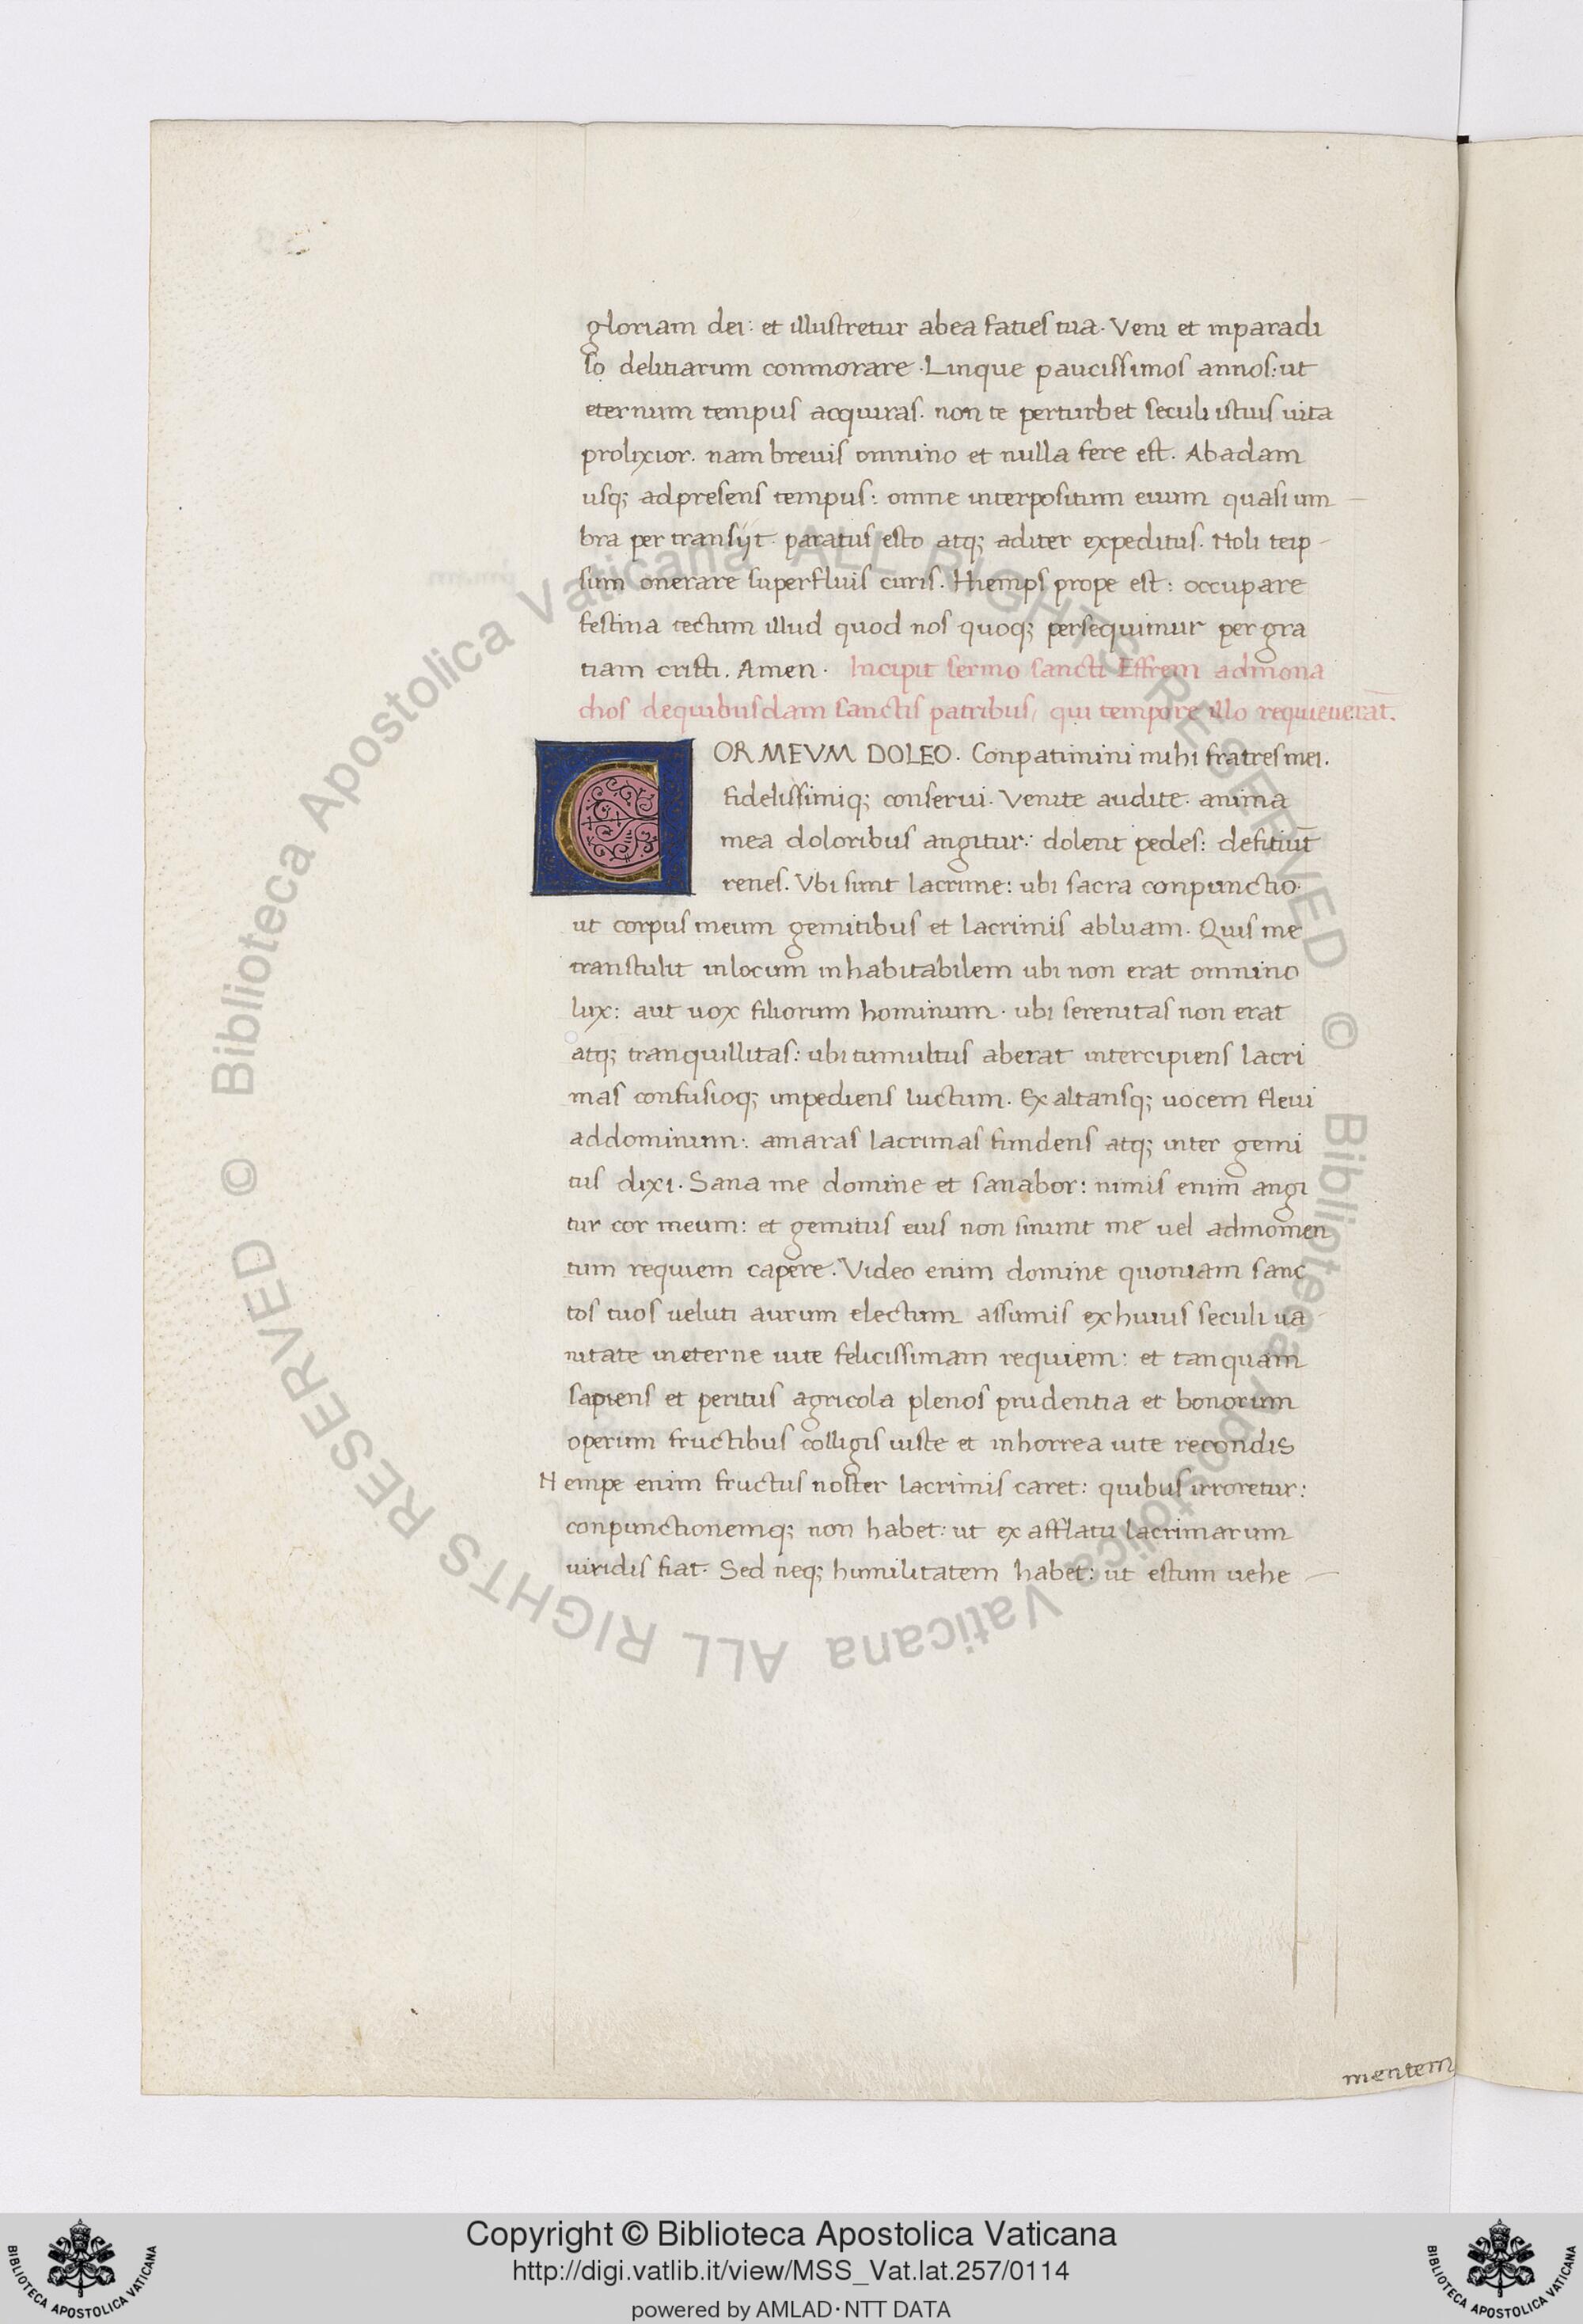 gloriam dei: et illustretur abea faties tua. Veni et inparadi
so delitiarum conmorare. Linque paucissimos annos: ut
eternum tempus acquiras. non te perturbet seculi istius uita
prolixior. nam breuis omnino et nulla fere est. Abadam
usq; adpresens tempus: omne interpositum euum quasi um
bra per transiit. paratus esto atq; aditer expeditus. Noli teip
sum onerare superfluis curis. Hiemps prope est: occupare
festina tectum illud quod nos quoq; persequimur per gra
tiam cristi. Amen. Incipit sermo sancti Effrem admona
chos dequibusdam sanctis patribus, qui tempore illo requieuerāt.
COR MEVM DOLEO. Conpatimini mihi fratres mei.
fidelissimiq; conserui. Venite audite. anima
mea doloribus angitur: dolent pedes: defitiūt
renes. Vbi sunt lacrime: ubi sacra conpunctio.
ut corpus meum gemitibus et lacrimis abluam. Quis me
transtulit inlocum inhabitabilem ubi non erat omnino
lux: aut uox filiorum hominum. ubi serenitas non erat
atq; tranquillitas: ubi tumultus aberat intercipiens lacri
mas confusioq; impediens luctum. Exaltansq; uocem fleui
addominum: amaras lacrimas fundens atq; inter gemi
tus dixi. Sana me domine et sanabor: nimis enim angi
tur cor meum: et gemitus eius non sinunt me uel admomen
tum requiem capere. Video enim domine quoniam sanc
tos tuos ueluti aurum electum assumis exhuius seculi ua
nitate ineterne uite felicissimam requiem: et tanquam
sapiens et peritus agricola plenos prudentia et bonorum
operum fructibus colligis iuste et inhorrea uite recondis
Nempe enim fructus noster lacrimis caret: quibus irroretur:
conpunctionemq; non habet: ut ex afflatu lacrimarum
uiridis fiat. Sed neq; humilitatem habet: ut estum uehe
mentem
© Biblioteca Apostolica Vaticana ALL RIGHTS RESERVED
© Biblioteca Apostolica Vaticana ALL RIGHTS RESERVED
Copyright © Biblioteca Apostolica Vaticana
http://digi.vatlib.it/view/MSS_Vat.lat.257/0114
powered by AMLAD·NTT DATA
BIBLIOTECA APOSTOLICA VATICANA
BIBLIOTECA APOSTOLICA VATICANA